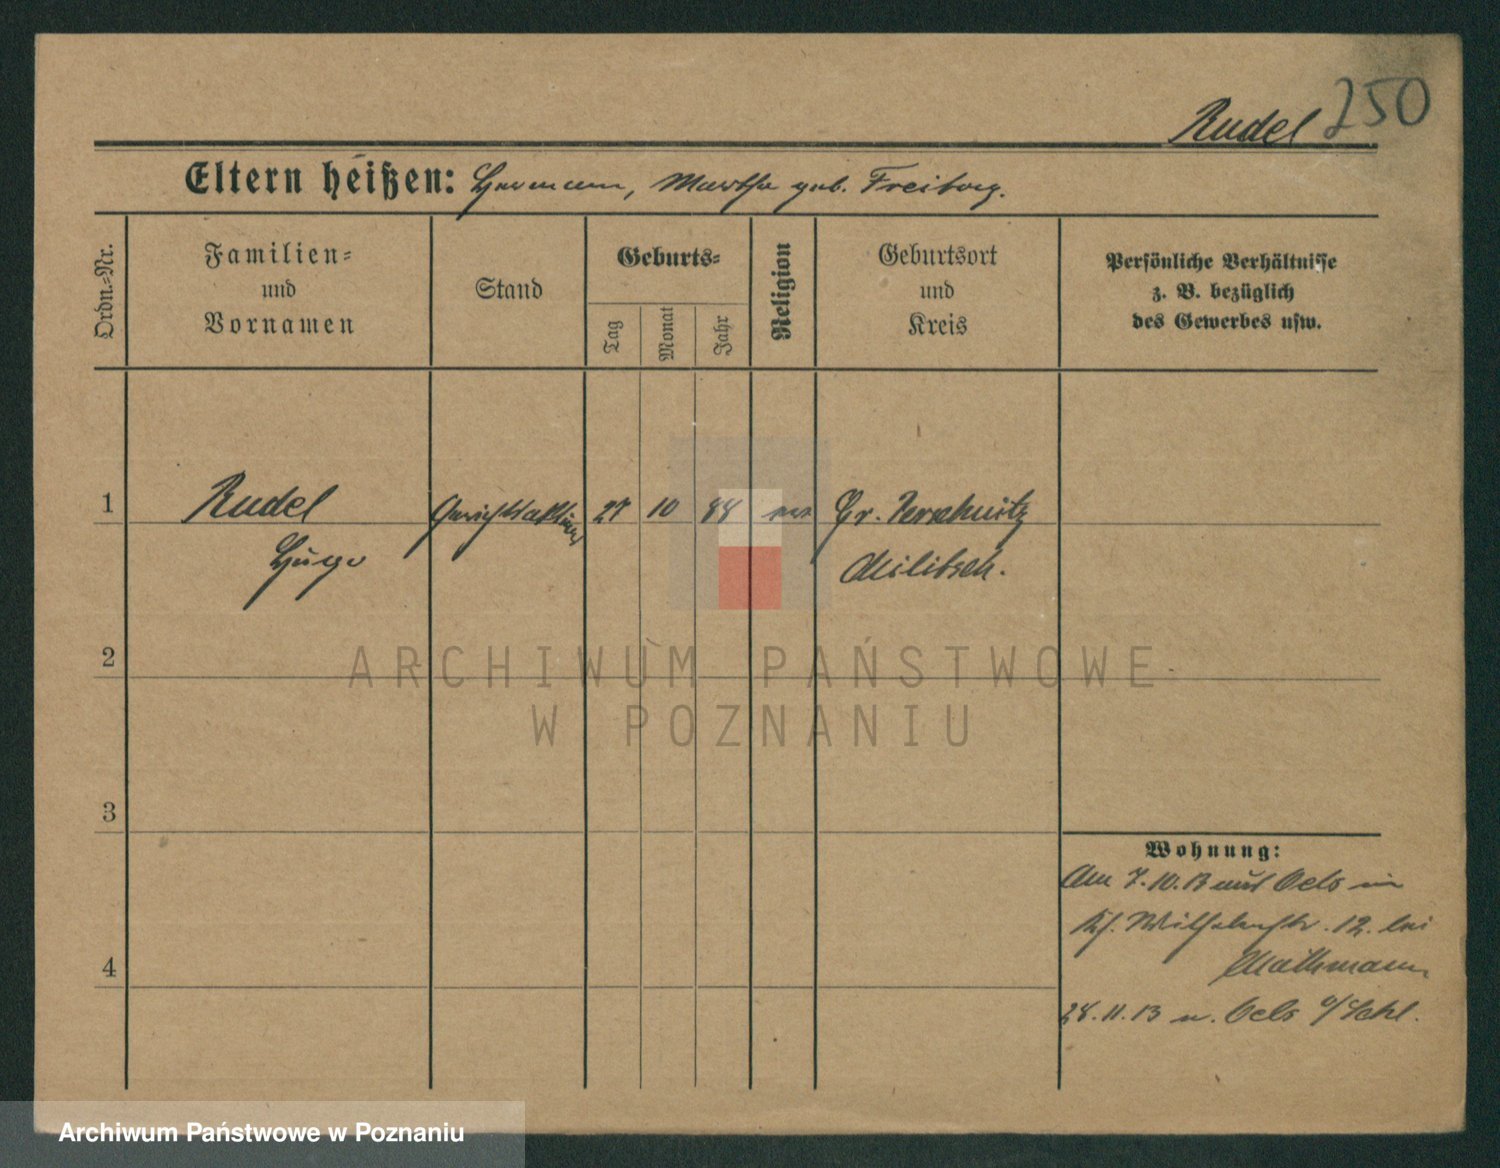 250
Rudel
Eltern heißen: Hermann, Martha geb. Freitag.
Ordn.=Nr.
Familien=
und
Vornamen
Stand
Geburts=
Tag
Monat
Jahr
Religion
Geburtsort
und
Kreis
Persönliche Verhältnisse
z. B. bezüglich
des Gewerbes usw.
1 Rudel 27 10 88 Gr.
Hugo Militsch.
2
3
4
Wohnung:
Am 7.10.13 aus Oels in
Wilhelmstr. 12. bei
28.11.13 n. Oels i/Schl.
ARCHIWUM PAŃSTWOWE
W POZNANIU
Archiwum Państwowe w Poznaniu